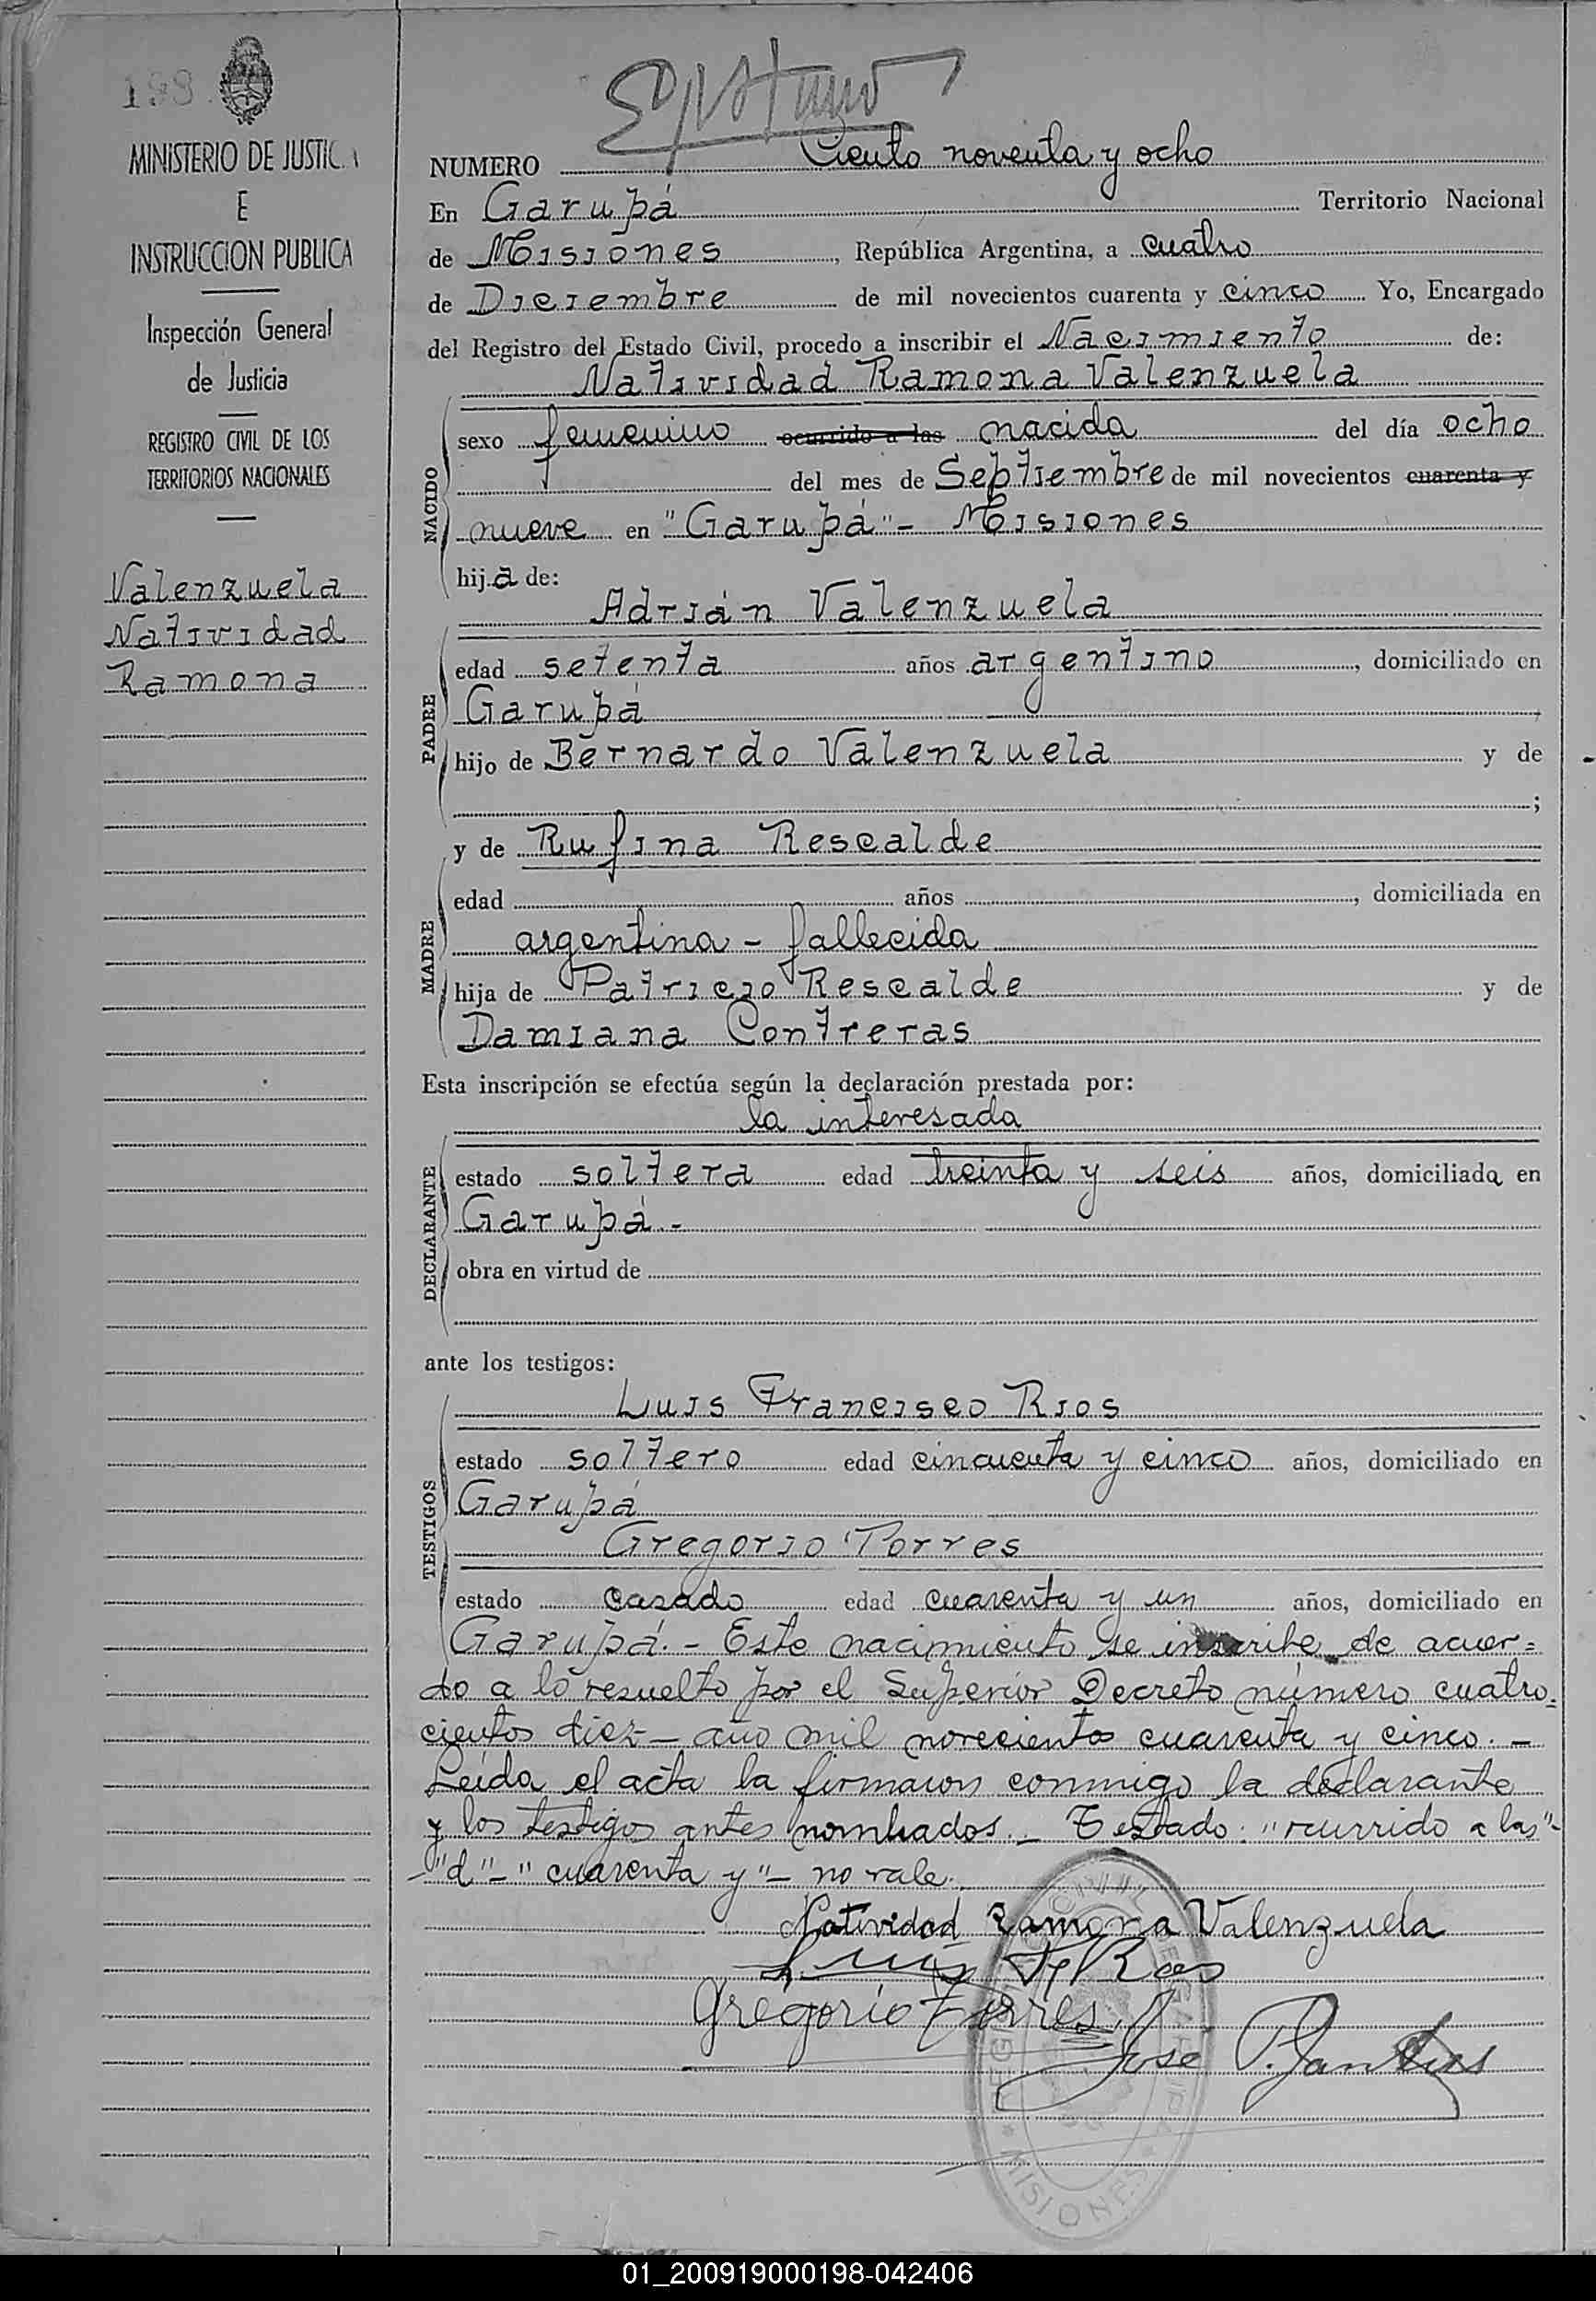 198
MINISTERIO DE JUSTICIA
E
INSTRUCCION PUBLICA
Inspección General
de Justicia
REGISTRO CIVIL DE LOS
TERRITORIOS NACIONALES
Valenzuela
Natividad
Ramona
NUMERO Ciento noventa y ocho
En Garupá Territorio Nacional
de Misiones, República Argentina, a cuatro
de Diciembre de mil novecientos cuarenta y cinco Yo, Encargado
del Registro del Estado Civil, procedo a inscribir el Nacimiento de:
Natividad Ramona Valenzuela
NACIDO
sexo femenino ocurrido a las nacida del día ocho
del mes de Septiembre de mil novecientos cuarenta y
nueve en "Garupá" - Misiones
hija de:
Adrián Valenzuela
PADRE
edad setenta años argentino, domiciliado en
Garupá
hijo de Bernardo Valenzuela y de
;
y de Rufina Rescalde
MADRE
edad años , domiciliada en
argentina - fallecida
hija de Patricio Rescalde y de
Damiana Contreras
Esta inscripción se efectúa según la declaración prestada por:
la interesada
DECLARANTE
estado soltera edad treinta y seis años, domiciliada en
Garupá.-
obra en virtud de
ante los testigos:
Luis Francisco Rios
TESTIGOS
estado soltero edad cincuenta y cinco años, domiciliado en
Garupá
Gregorio Torres
estado casado edad cuarenta y un años, domiciliado en
Garupá.- Este nacimiento se inscribe de acuer=
do a lo resuelto por el Superior Decreto número cuatro=
cientos diez - año mil novecientos cuarenta y cinco.-
Leída el acta la firmaron conmigo la declarante
y los testigos antes nombrados.- Testado: "ocurrido a las"-
-"d"-"cuarenta y"- no vale.
Natividad Ramona Valenzuela
Luis F Rios
Gregorio Torres
Jose P.
MISIONES
01_200919000198-042406